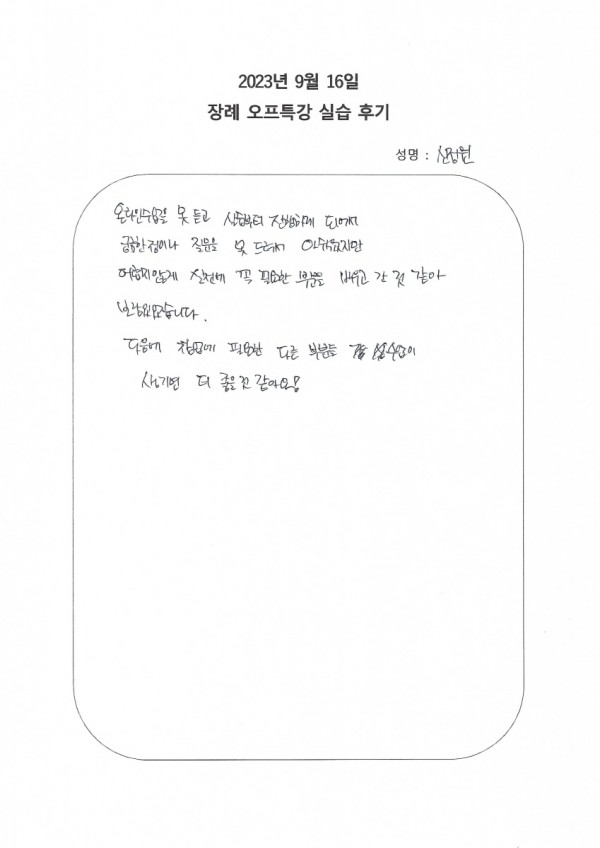 2023년 9월 16일
장례 오프특강 실습 후기
성명 : 신정원
온라인수업을 못 듣고 실습부터 진행하게 되어서
궁금한점이나 질문을 못 드려서 아쉬웠지만
어렵지않게 실전에 꼭 필요한 부분을 배우고 간 것 같아
보람있었습니다.
다음에 창업에 필요한 다른 부분들 실습수업이
생기면 더 좋을것 같아요!